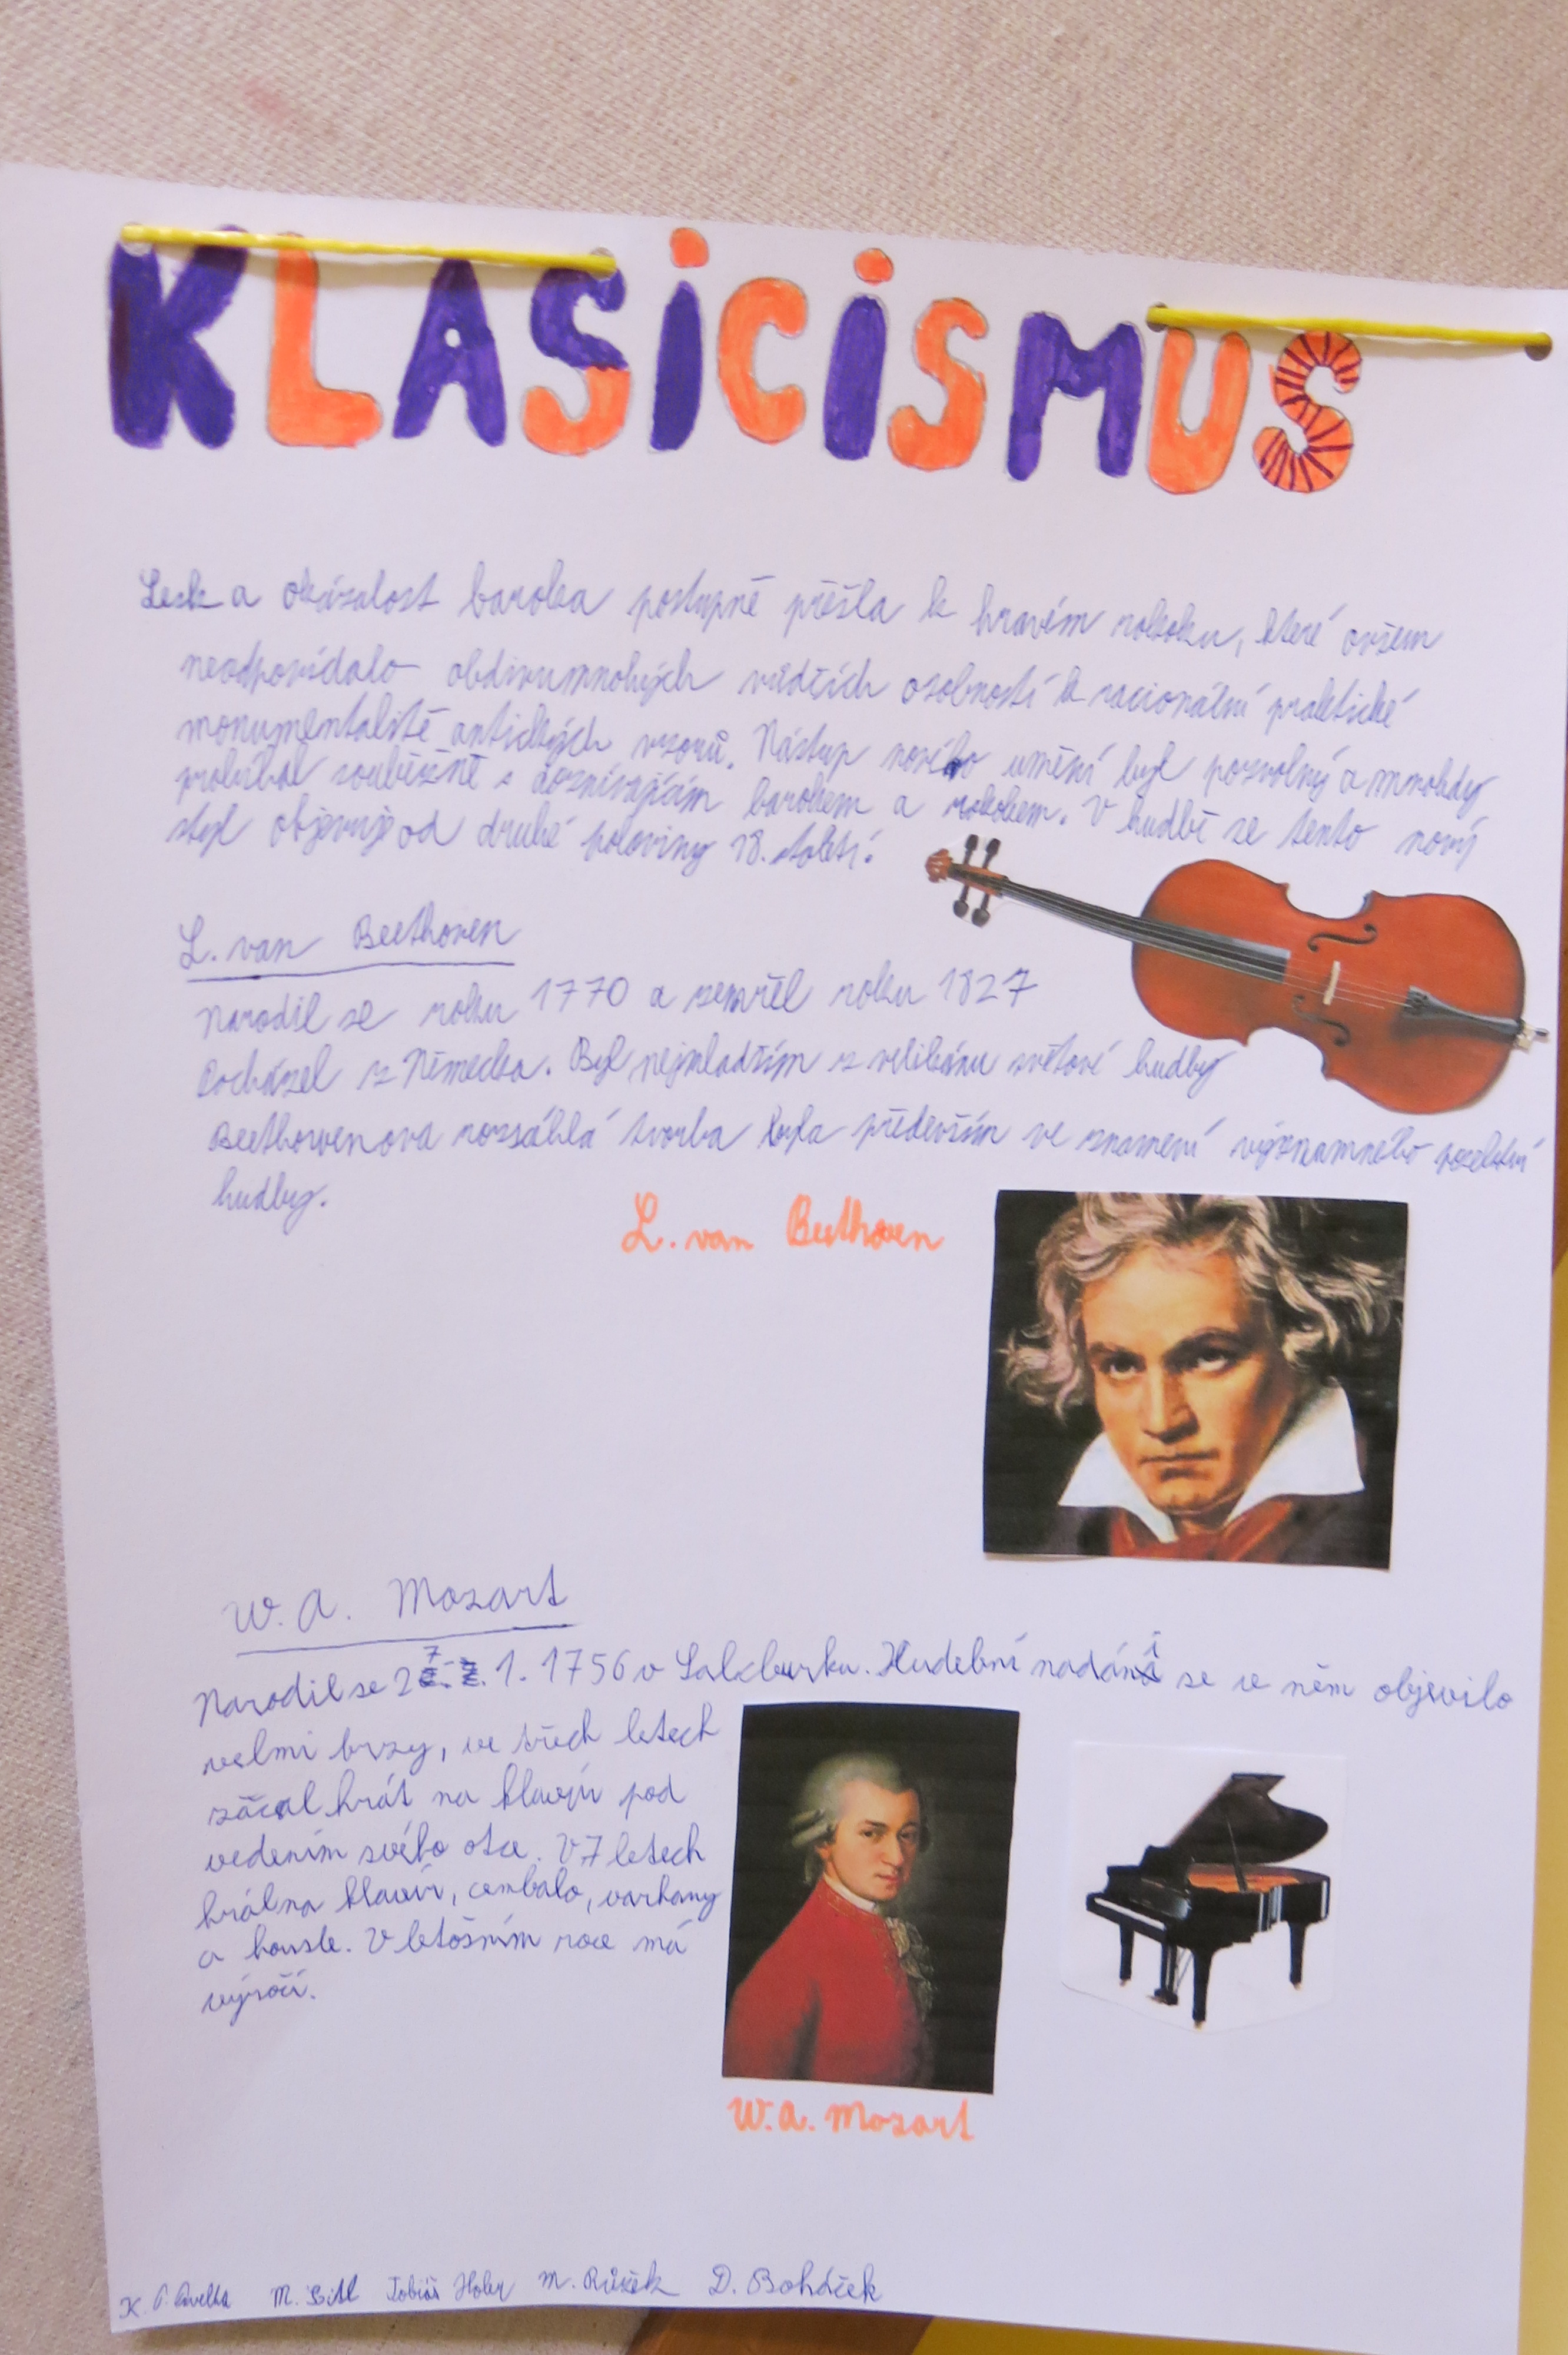 KLASICISMUS
Lesk a okázalost baroka postupně přešla k hravém rokoku, které ovšem
neodpovídalo obdivu mnohých vůdčích osobností k racionální praktické
monumentalitě antických vzorů. Nástup nového umění byl pozvolný a mnohdy
probíhal souběžně s doznívajícím barokem a rokokem. V hudbě se tento nový
styl objevuje od druhé poloviny 18. století.
L. van Beethoven
Narodil se roku 1770 a zemřel roku 1827
Pocházel z Německa. Byl nejmladším z velikánu světové hudby
Beethovenova rozsáhlá tvorba byla především ve znamení významného poselství
hudby.
L. van Beethoven
W. A. Mozart
Narodil se 27. 1. 1756 v Salzburku. Hudební nadání se v něm objevilo
velmi brzy, ve třech letech
začal hrát na klavír pod
vedením svého otce. V 7 letech
hrál na klavír, cembalo, varhany
a housle. V letošním roce má
výročí.
W. A. Mozart
K. P. Pavelka M. Tobiáš M. Růžek D. Boháček